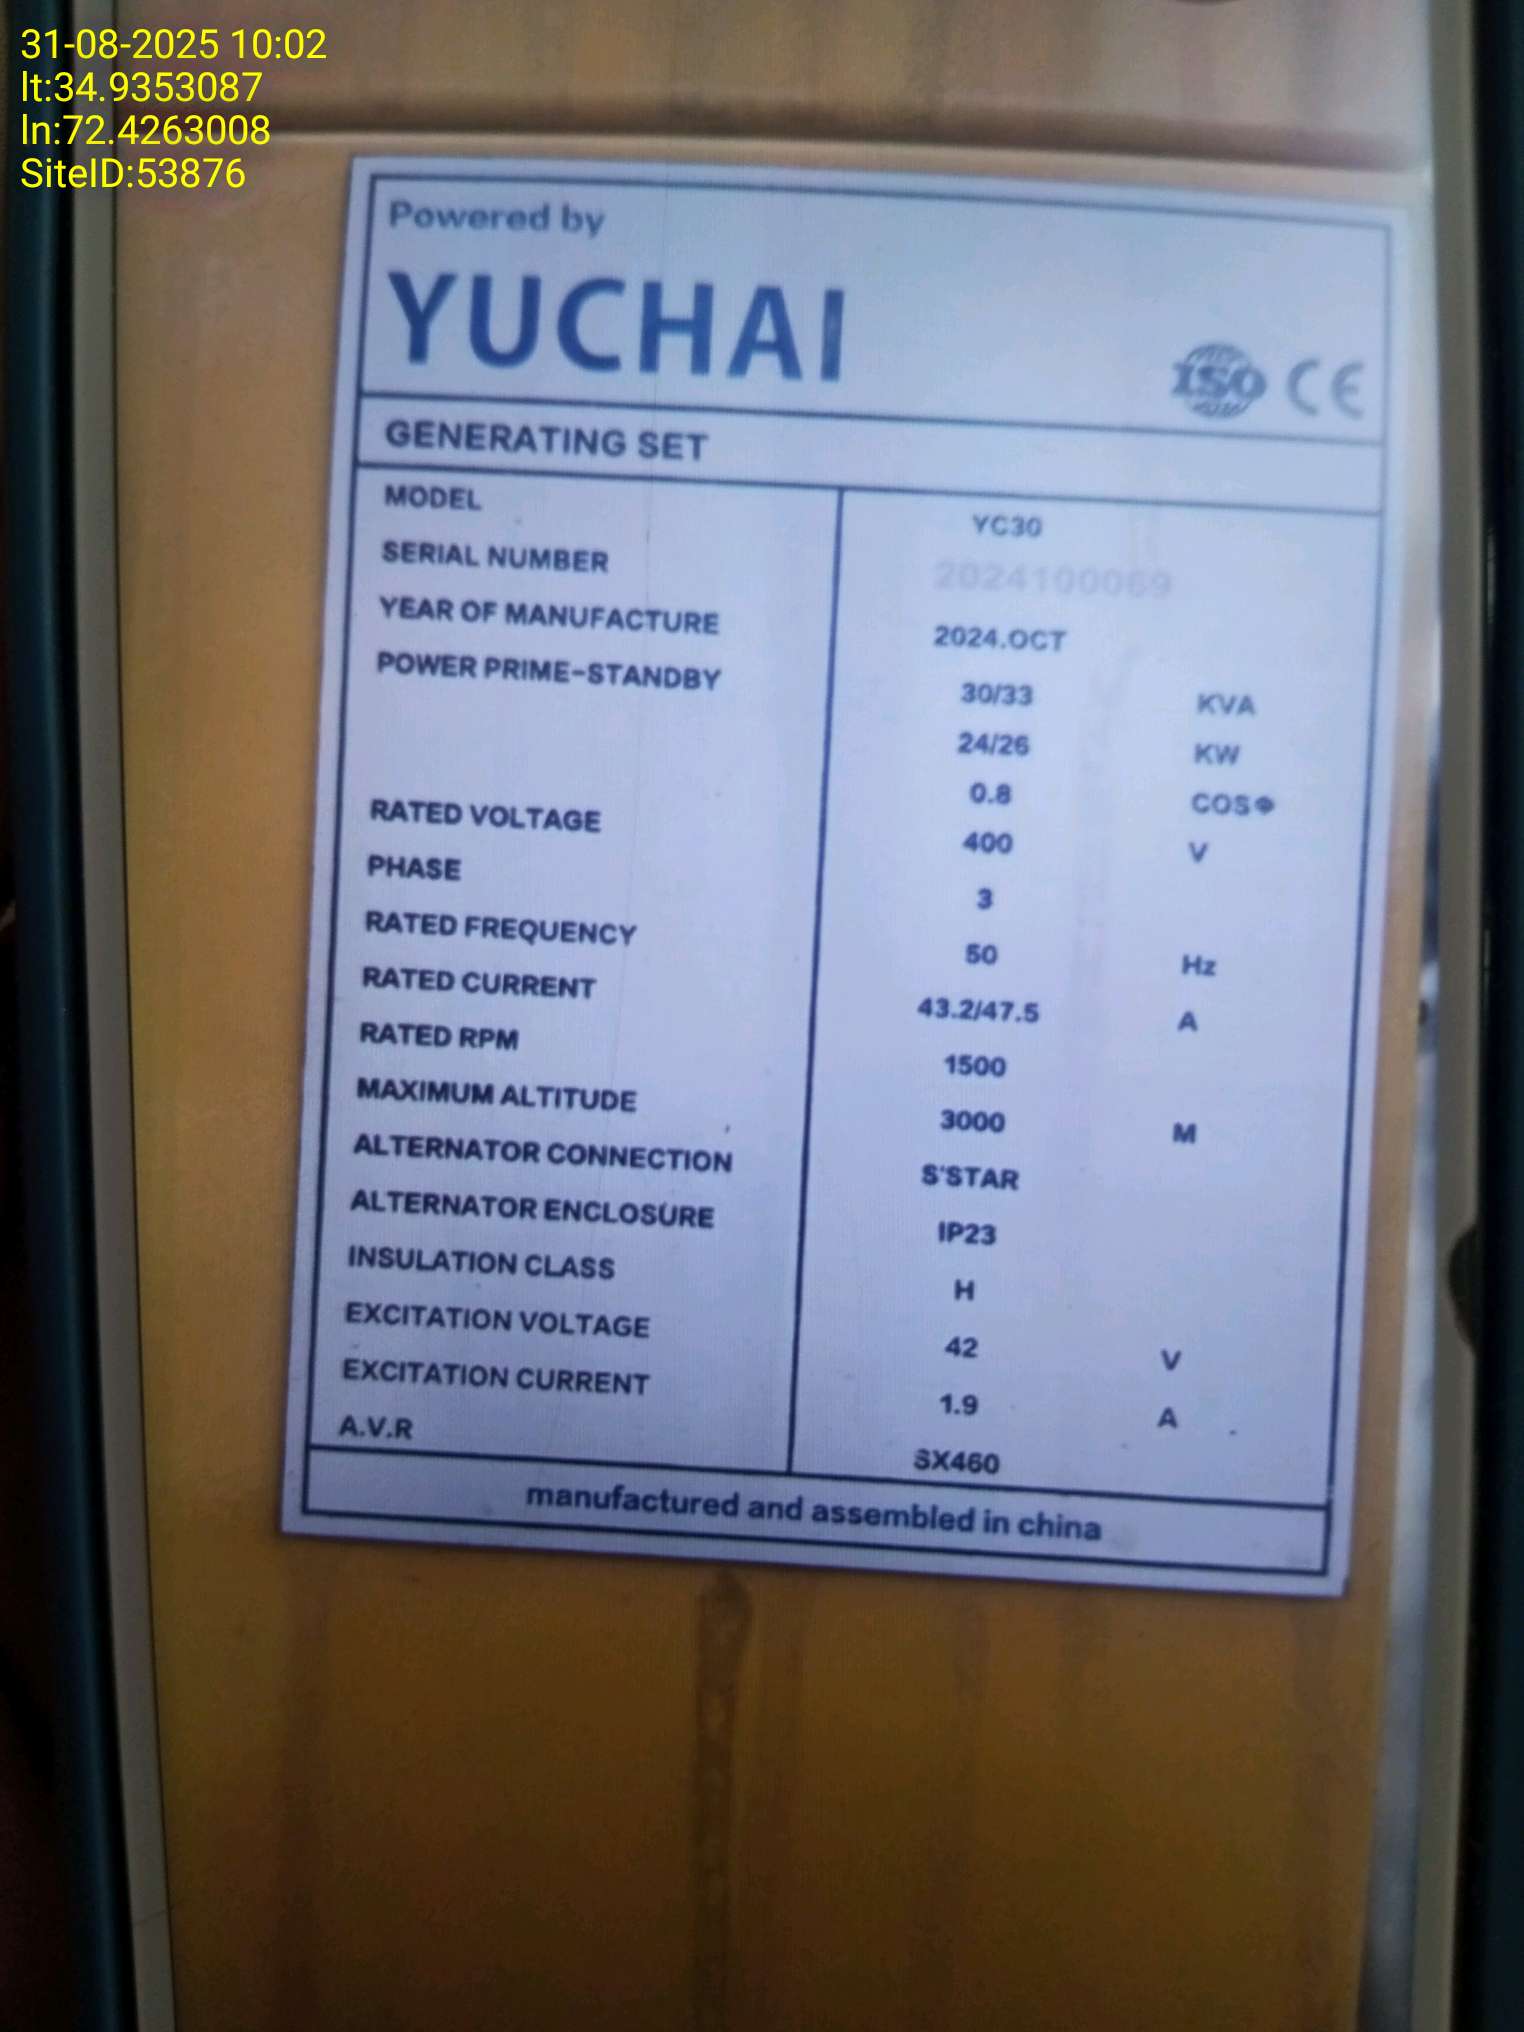 31-08-2025 10:02
lt:34.9353087
ln:72.4263008
SiteID:53876
Powered by
YUCHAI
ISO CE
GENERATING SET
MODEL YC30
SERIAL NUMBER 2024100069
YEAR OF MANUFACTURE 2024.OCT
POWER PRIME-STANDBY 30/33 KVA
24/26 KW
0.8 COSΦ
RATED VOLTAGE 400 V
PHASE 3
RATED FREQUENCY 50 Hz
RATED CURRENT 43.2/47.5 A
RATED RPM 1500
MAXIMUM ALTITUDE 3000 M
ALTERNATOR CONNECTION S'STAR
ALTERNATOR ENCLOSURE IP23
INSULATION CLASS H
EXCITATION VOLTAGE 42 V
EXCITATION CURRENT 1.9 A
A.V.R SX460
manufactured and assembled in china